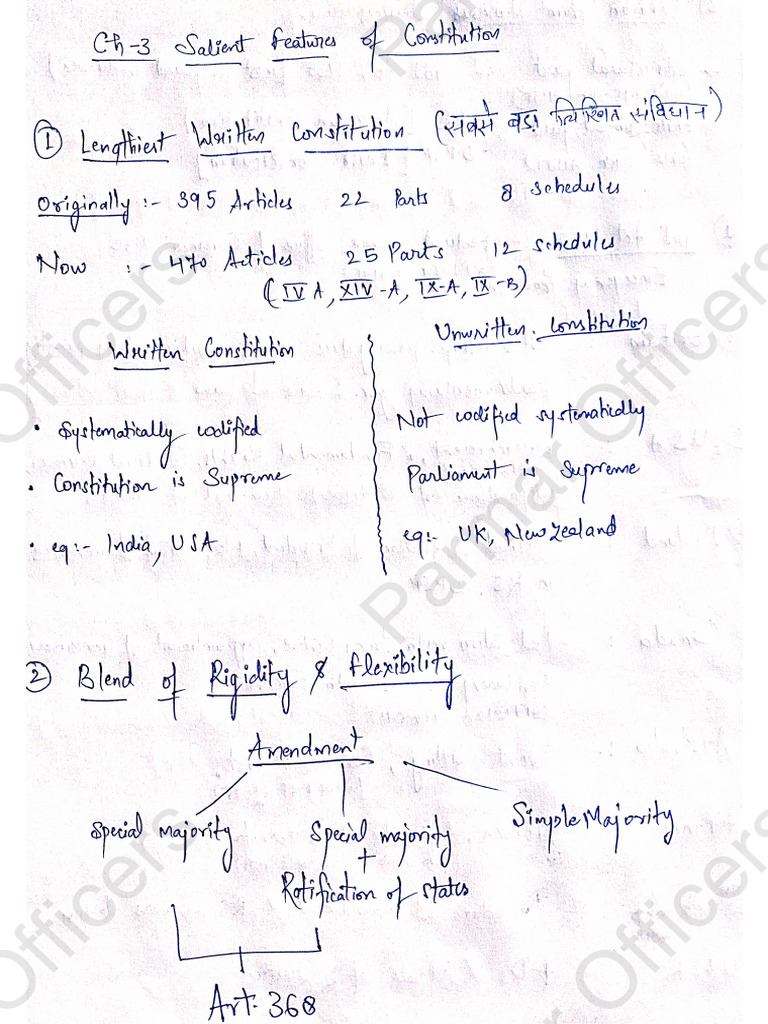 Ch-3 Salient Features of Constitution
① Lengthiest Written Constitution (सबसे बड़ा लिखित संविधान)
Originally :- 395 Articles 22 Parts 8 schedules
Now :- 470 Articles 25 Parts 12 schedules
(IV A, XIV-A, IX-A, IX-B)
Written Constitution
Unwritten Constitution
• Systematically codified
• Constitution is Supreme
• eg:- India, USA
Not codified systematically
Parliament is Supreme
eg:- UK, New Zealand
② Blend of Rigidity & Flexibility
Amendment
Special majority
Special majority
+
Ratification of states
Simple Majority
Art. 368
Parmar Officers